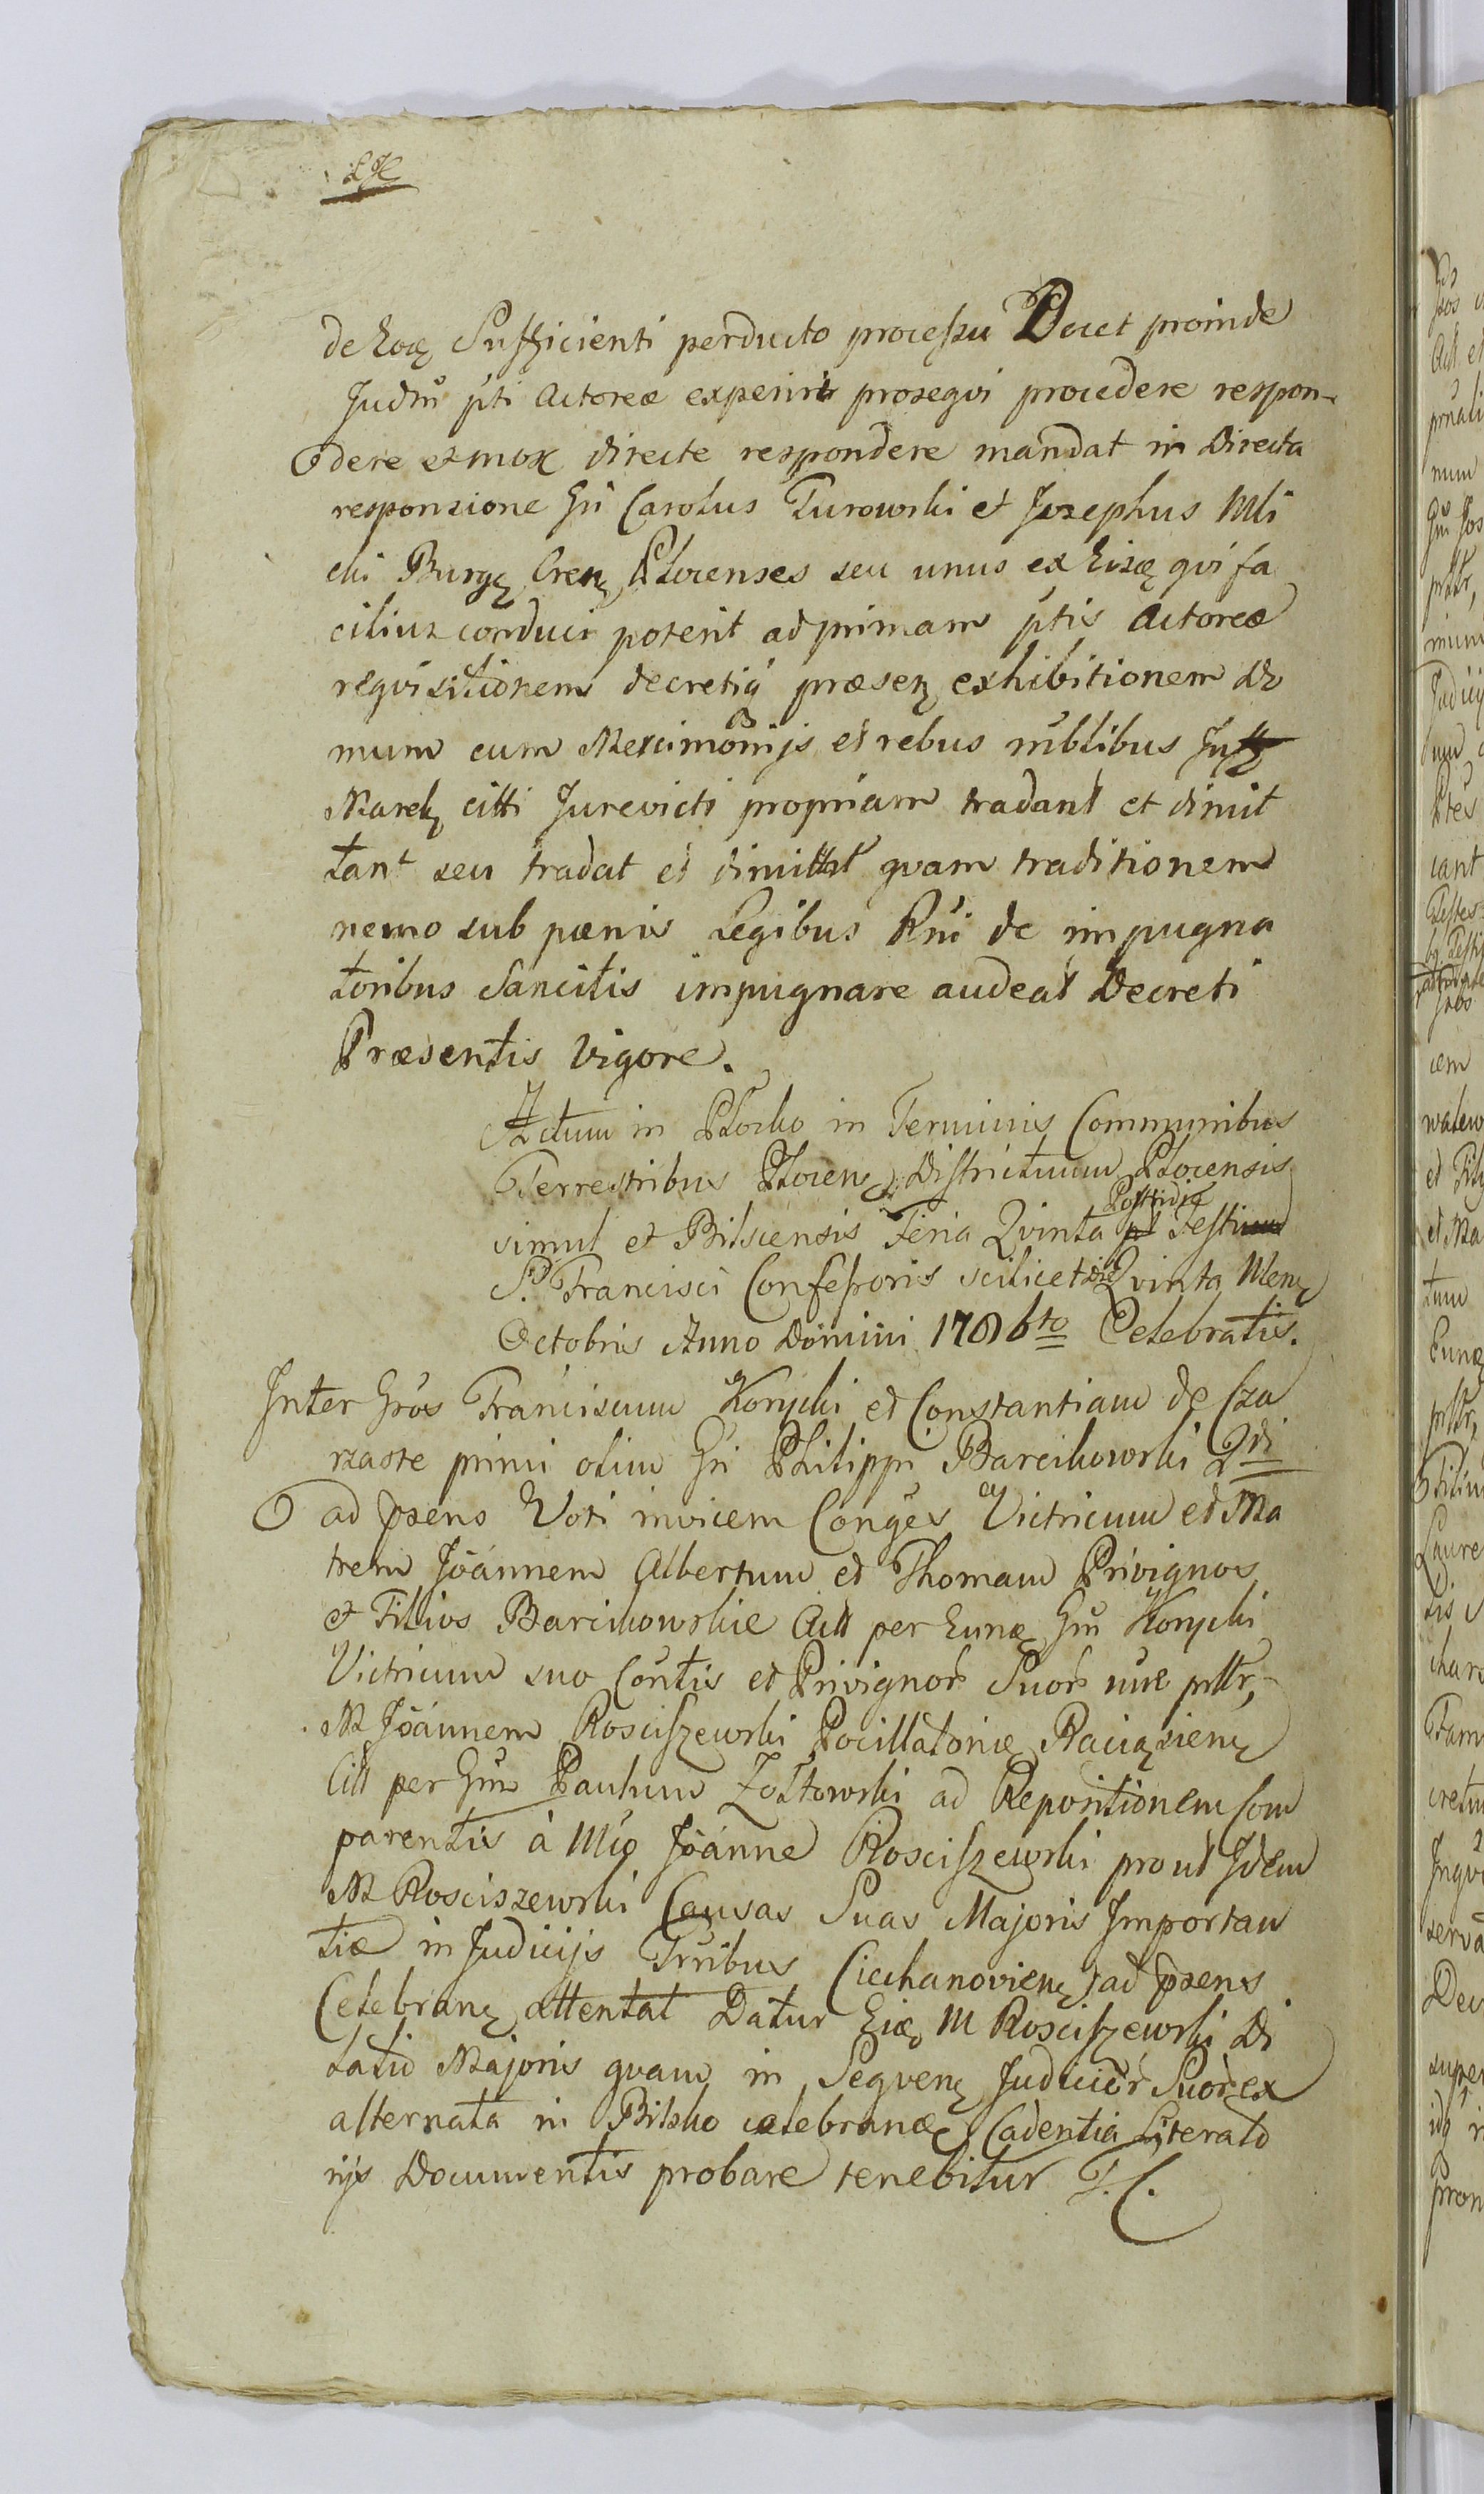 de Eoq Sufficienti perducto processu Docet proinde
Judm pti Actoreæ experiri proseqvi procedere respon-
dere et mox directe respondere mandat in Directa
responsione Gii Carolus Turowski et Josephus Mli
cki Burgę Cren Plocenses seu unus ex Eisą qvi fa
cilius conduci poterit ad primam ptis Actoreæ
reqvisitionem decretiq præsen exhibitionem do
mum cum Mercimonijs et rebus mblibus
citti Jurevicti propriam tradant et dimit
tant seu tradat et dimittat qvam traditionem
nemo sub pœnis Legibus Rni de impugna
toribus Sancitis impugnare audeat Decreti
Præsentis Vigore.
Actum in Plocko in Terminis Communibus
Terrestribus Plocen Districtuum Plocensis
simul et Bilscensis Feria Qvinta Postridie Festi
S. Francisci Confessoris scilicet die Qvinta Mens
Octobris Anno Domini 1786to Celebratis.
Inter Gros Franciscum Konycki et Constantiam de Cza
rzaste primi olim Gii Philippi Barcikowski 2di
ad præns Voti invicem Conges Victricum et Ma
trem Joannem Albertum et Thomam Privignos
et Filios Barcikowskie Act per Eunq Gm Konycki
Victricum suo Contis et Privignor Suor nne prttr,
M Joannem Rosciszewski Pocillatoriæ Raciązien
Citt per Gm Paulum Zoltowski ad Repositionem Com
parentis à Mco Joanne Rosciszewski prout Idem
M Rosciszewski Causas Suas Majoris Importan
tiæ in Judicijs Trribus Ciechanovien ad præns
Celebran attentat Datur Eiq M Rosciszewski Di
latio Majoris qvam in Seqven Judicior Suor ex
alternata in Bilsko celebranq Cadentia Literato
rijs Documentis probare tenebitur T. C.